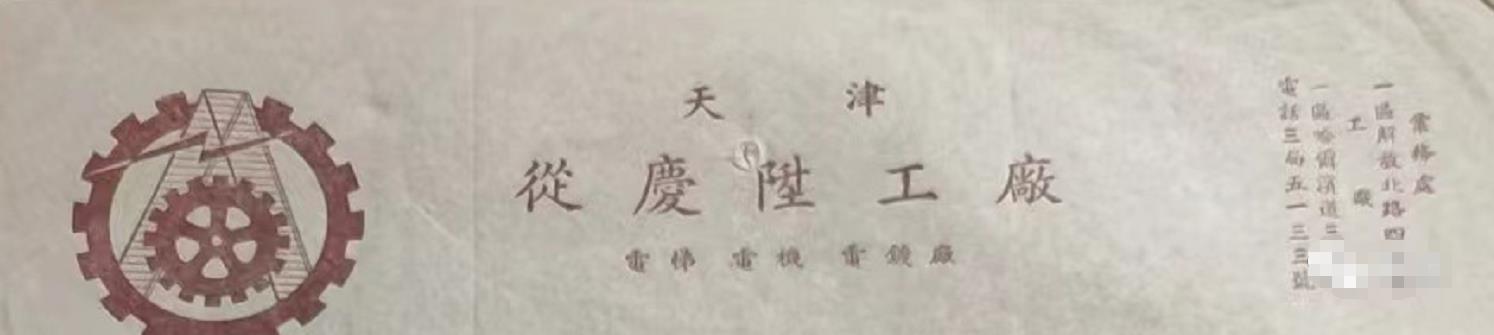 天津
從慶陞工廠
電梯 電機 電鍍廠
業務處
一區解放北路四
工廠
一區哈爾濱道三
電話三局五一三三號